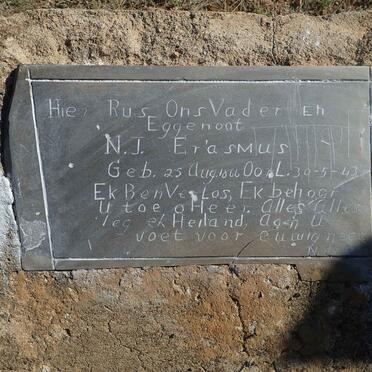 Hier Rus Ons Vader En
Eggenoot
N.J. Erasmus
Geb. 25 Aug. O.L. 30-5-43
Ek Ben Verlos, Ek behoor
U toe o Heer. Alles Alles
leg ek Heiland, aan U
voet voor euwig neer